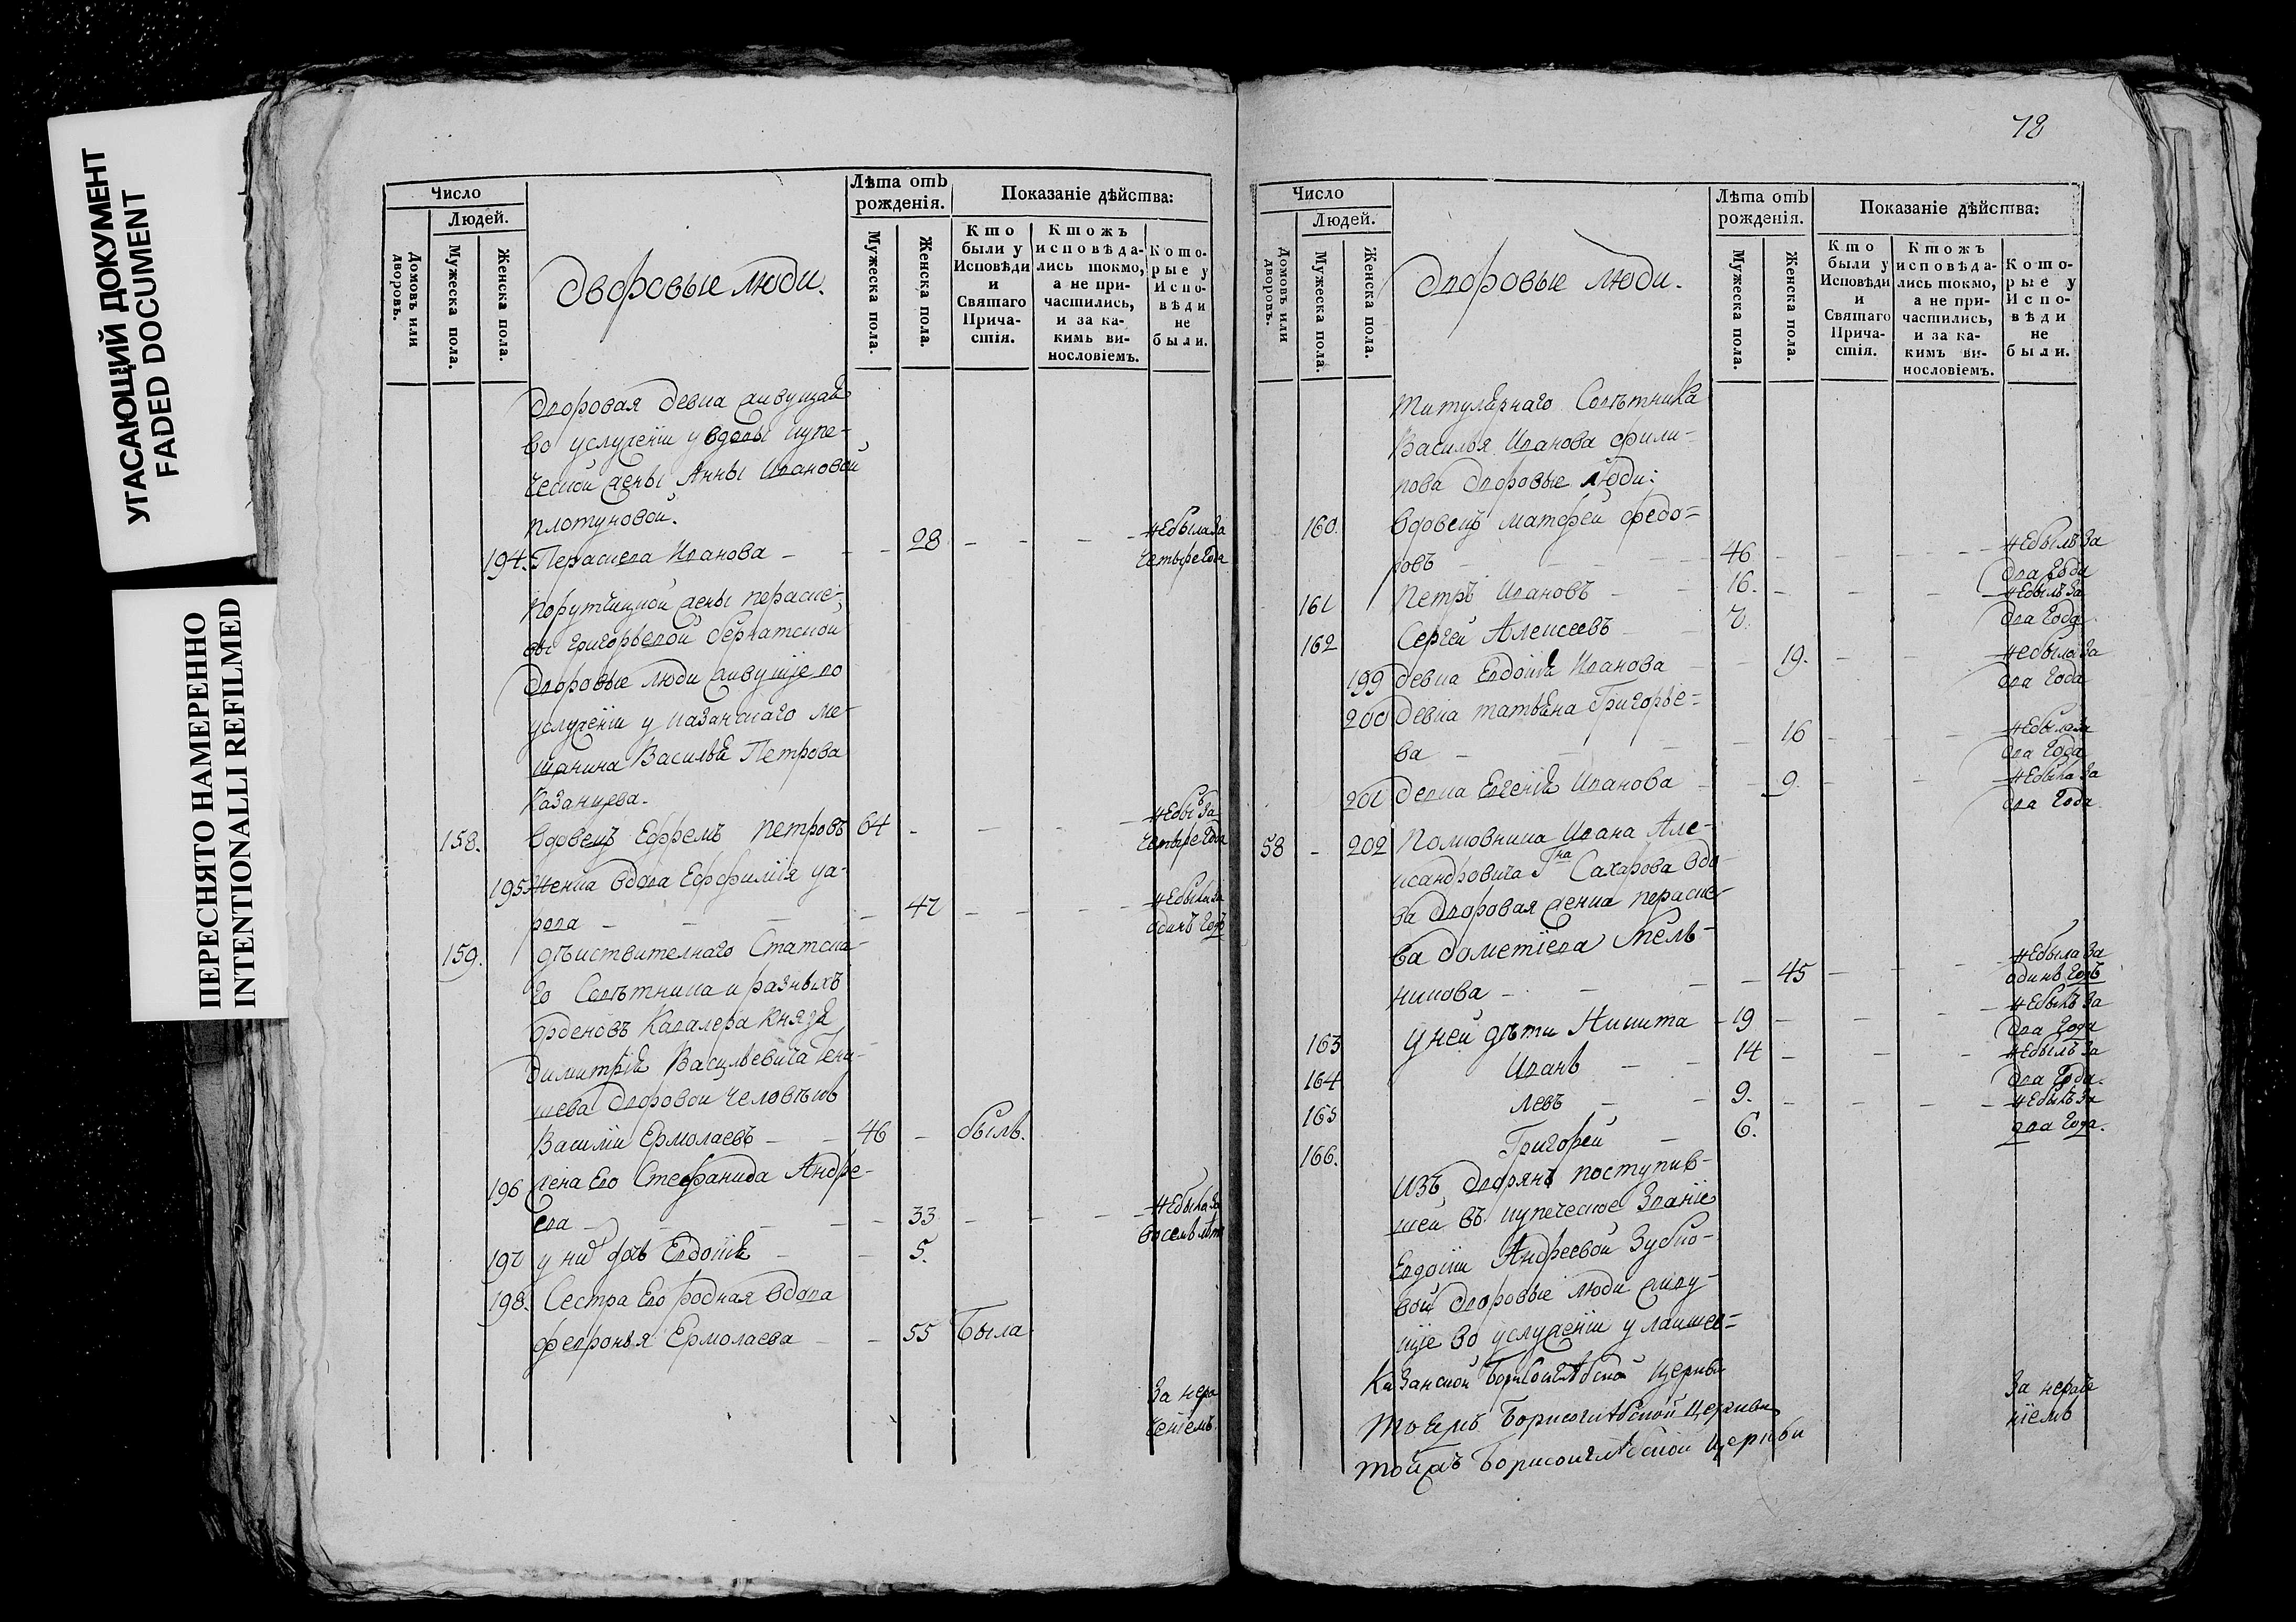 УГАСАЮЩИЙ ДОКУМЕНТ
FADED DOCUMENT
ПЕРЕСНЯТО НАМЕРЕННО
INTENTIONALLI REFILMED
Число
Людей.
Домовъ или дворовъ.
Мужеска пола.
Женска пола.
Дворовые люди.
Лѣта отъ рожденія.
Мужеска пола.
Женска пола.
Показаніе дѣйства:
Кто были у Исповѣди и Святаго Прича-стія.
Ктожъ исповѣда-лись токмо, а не при-частились, и за ка-кимъ ви-нословіемъ.
Кото-рые у Испо-вѣди не были.
Дворовая девка живущая
во услуженіи у вдовы купе-
ческой жены Анны Ивановой
Плотуновой.
194. Парасκева Иванова - - 28 - - - - не была за
четыре года
Порутчицкой жены Параске-
вы Григорьевой
Дворовые люди живущіе во
услуженіи у казанскаго ме-
щанина Василья Петрова
Казанцева.
158. вдовецъ Ефремъ Петровъ 64 - - - - не бы за
четыре года
195 Женка вдова Еффимія ка-
рова - - - - 47 - - - - не была за
одинъ годъ
159. дѣиствителнаго Статска-
го Совѣтника и разныхъ
орденовъ Кавалера Князя
Димитрія Васильевича Тени-
шева Дворовои человѣкъ
Василіи Ермолаевъ - - 46 - былъ.
196 жена Его Стефанида Андре-
ева - - - - 33 - - - - не была за
восемь лѣт
197 у них дочь Евдокія - - 5.
198. Сестра Его родная вдова
Февронья Ермолаева - - 55 Была
За нера
ченіемъ
78
Число
Людей.
Домовъ или дворовъ.
Мужеска пола.
Женска пола.
Дворовые люди.
Лѣта отъ рожденія.
Мужеска пола.
Женска пола.
Показаніе дѣйства:
Кто были у Исповѣди и Святаго Прича-стія.
Ктожъ исповѣда-лись токмо, а не при-частились, и за ка-кимъ ви-нословіемъ.
Кото-рые у Испо-вѣди не были.
Титулярнаго Совѣтника
Василья Иванова Фили-
пова Дворовые люди:
160. вдовецъ Матфей Федо=
ровъ - - - 46 - - - - не былъ за
два года
161 Петръ Ивановъ - - 16. - - - - не былъ за
два года
162 Сергей Алексеевъ - - 7.
199 девка Евдокія Иванова - - 19. - - - не была за
два года
200 девка Татьяна Григорье=
ва - - - - 16 - - - не была за
два года
201 девка Евгенія Иванова - - 9. - - не была за
два года
58 - 202 Полковника Ивана Але-
ксандровича Гна Сахарова вдо-
ва Дворовая женка Параске-
ва Дометіева Мель-
никова - - - - 45 - - - не была за
одинъ годъ
163 У ней дѣти Никита - 19 - - - не былъ за
два года
164 Иванъ - - 14 - - - не былъ за
два года.
165 Левъ - - 9. - - - - не былъ за
два года.
166. Григорей - 6.
Изъ Дворянъ поступив-
шеи въ купеческое званіе
Евдокіи Андреевой Зубко-
вой Дворовые люди живу-
щіе во услуженіи у лаишев=
Казанской Борисоглѣбской церкви
Тоежъ Борисоглѣбской Церкви
Тойжъ Борисоглѣбской церкви
За нераче
ніемъ